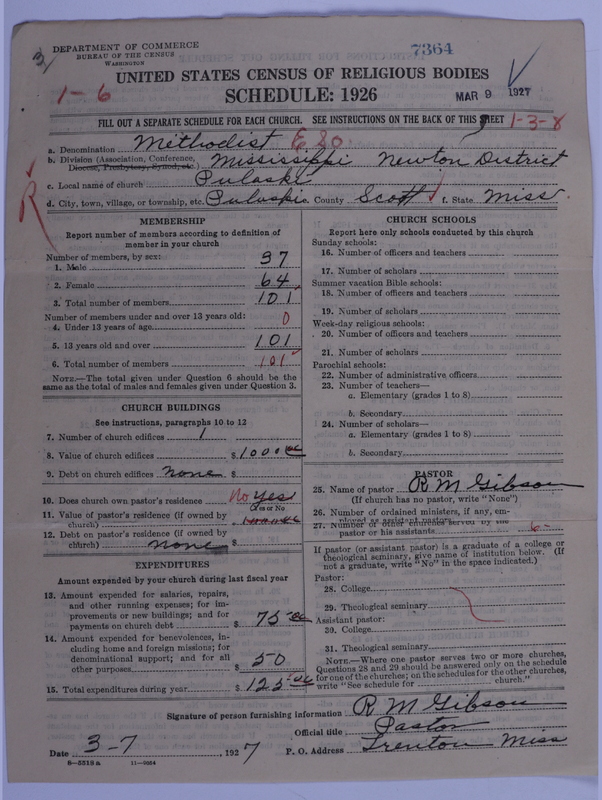 DEPARTMENT OF COMMERCE
BUREAU OF THE CENSUS
WASHINGTON
7364
UNITED STATES CENSUS OF RELIGIOUS BODIES
1-6
SCHEDULE: 1926
MAR 9 1927
FILL OUT A SEPARATE SCHEDULE FOR EACH CHURCH. SEE INSTRUCTIONS ON THE BACK OF THIS SHEET 1-3-8
a. Denomination Methodist E So
b. Division (Association, Conference, Diocese, Presbytery, Synod, etc.) Mississippi Newton District
c. Local name of church Pulaski
d. City, town, village, or township, etc. Pulaski e. County Scott f. State Miss.
R
MEMBERSHIP
Report number of members according to definition of
member in your church
Number of members, by sex:
1. Male 37
2. Female 64
3. Total number of members 101
Number of members under and over 13 years old:
4. Under 13 years of age 0
5. 13 years old and over 101
6. Total number of members 101
NOTE.—The total given under Question 6 should be the
same as the total of males and females given under Question 3.
CHURCH BUILDINGS
See instructions, paragraphs 10 to 12
7. Number of church edifices 1
8. Value of church edifices $1000 00
9. Debt on church edifices none $
10. Does church own pastor's residence No Yes
Yes or No
11. Value of pastor's residence (if owned by
church)
12. Debt on pastor's residence (if owned by
church) none $
EXPENDITURES
Amount expended by your church during last fiscal year
13. Amount expended for salaries, repairs,
and other running expenses; for im-
provements or new buildings; and for
payments on church debt $ 75 00
14. Amount expended for benevolences, in-
cluding home and foreign missions; for
denominational support; and for all
other purposes $ 50
15. Total expenditures during year $ 125 00
CHURCH SCHOOLS
Report here only schools conducted by this church
Sunday schools:
16. Number of officers and teachers
17. Number of scholars
Summer vacation Bible schools:
18. Number of officers and teachers
19. Number of scholars
Week-day religious schools:
20. Number of officers and teachers
21. Number of scholars
Parochial schools:
22. Number of administrative officers
23. Number of teachers—
a. Elementary (grades 1 to 8)
b. Secondary
24. Number of scholars—
a. Elementary (grades 1 to 8)
b. Secondary
PASTOR
25. Name of pastor R M Gibson
(If church has no pastor, write "None")
26. Number of ordained ministers, if any, em-
ployed as assistant pastors
27. Number of other churches served by the
pastor or his assistants 6
If pastor (or assistant pastor) is a graduate of a college or
theological seminary, give name of institution below. (If
not a graduate, write "No" in the space indicated.)
Pastor:
28. College
29. Theological seminary
Assistant pastor:
30. College
31. Theological seminary
NOTE.—Where one pastor serves two or more churches,
Questions 28 and 29 should be answered only on the schedule
for one of the churches; on the schedules for the other churches,
write "See schedule for church."
Signature of person furnishing information R M Gibson
Official title Pastor
Date 3-7, 1927 P. O. Address Trenton Miss
8—5518 a 11—9064